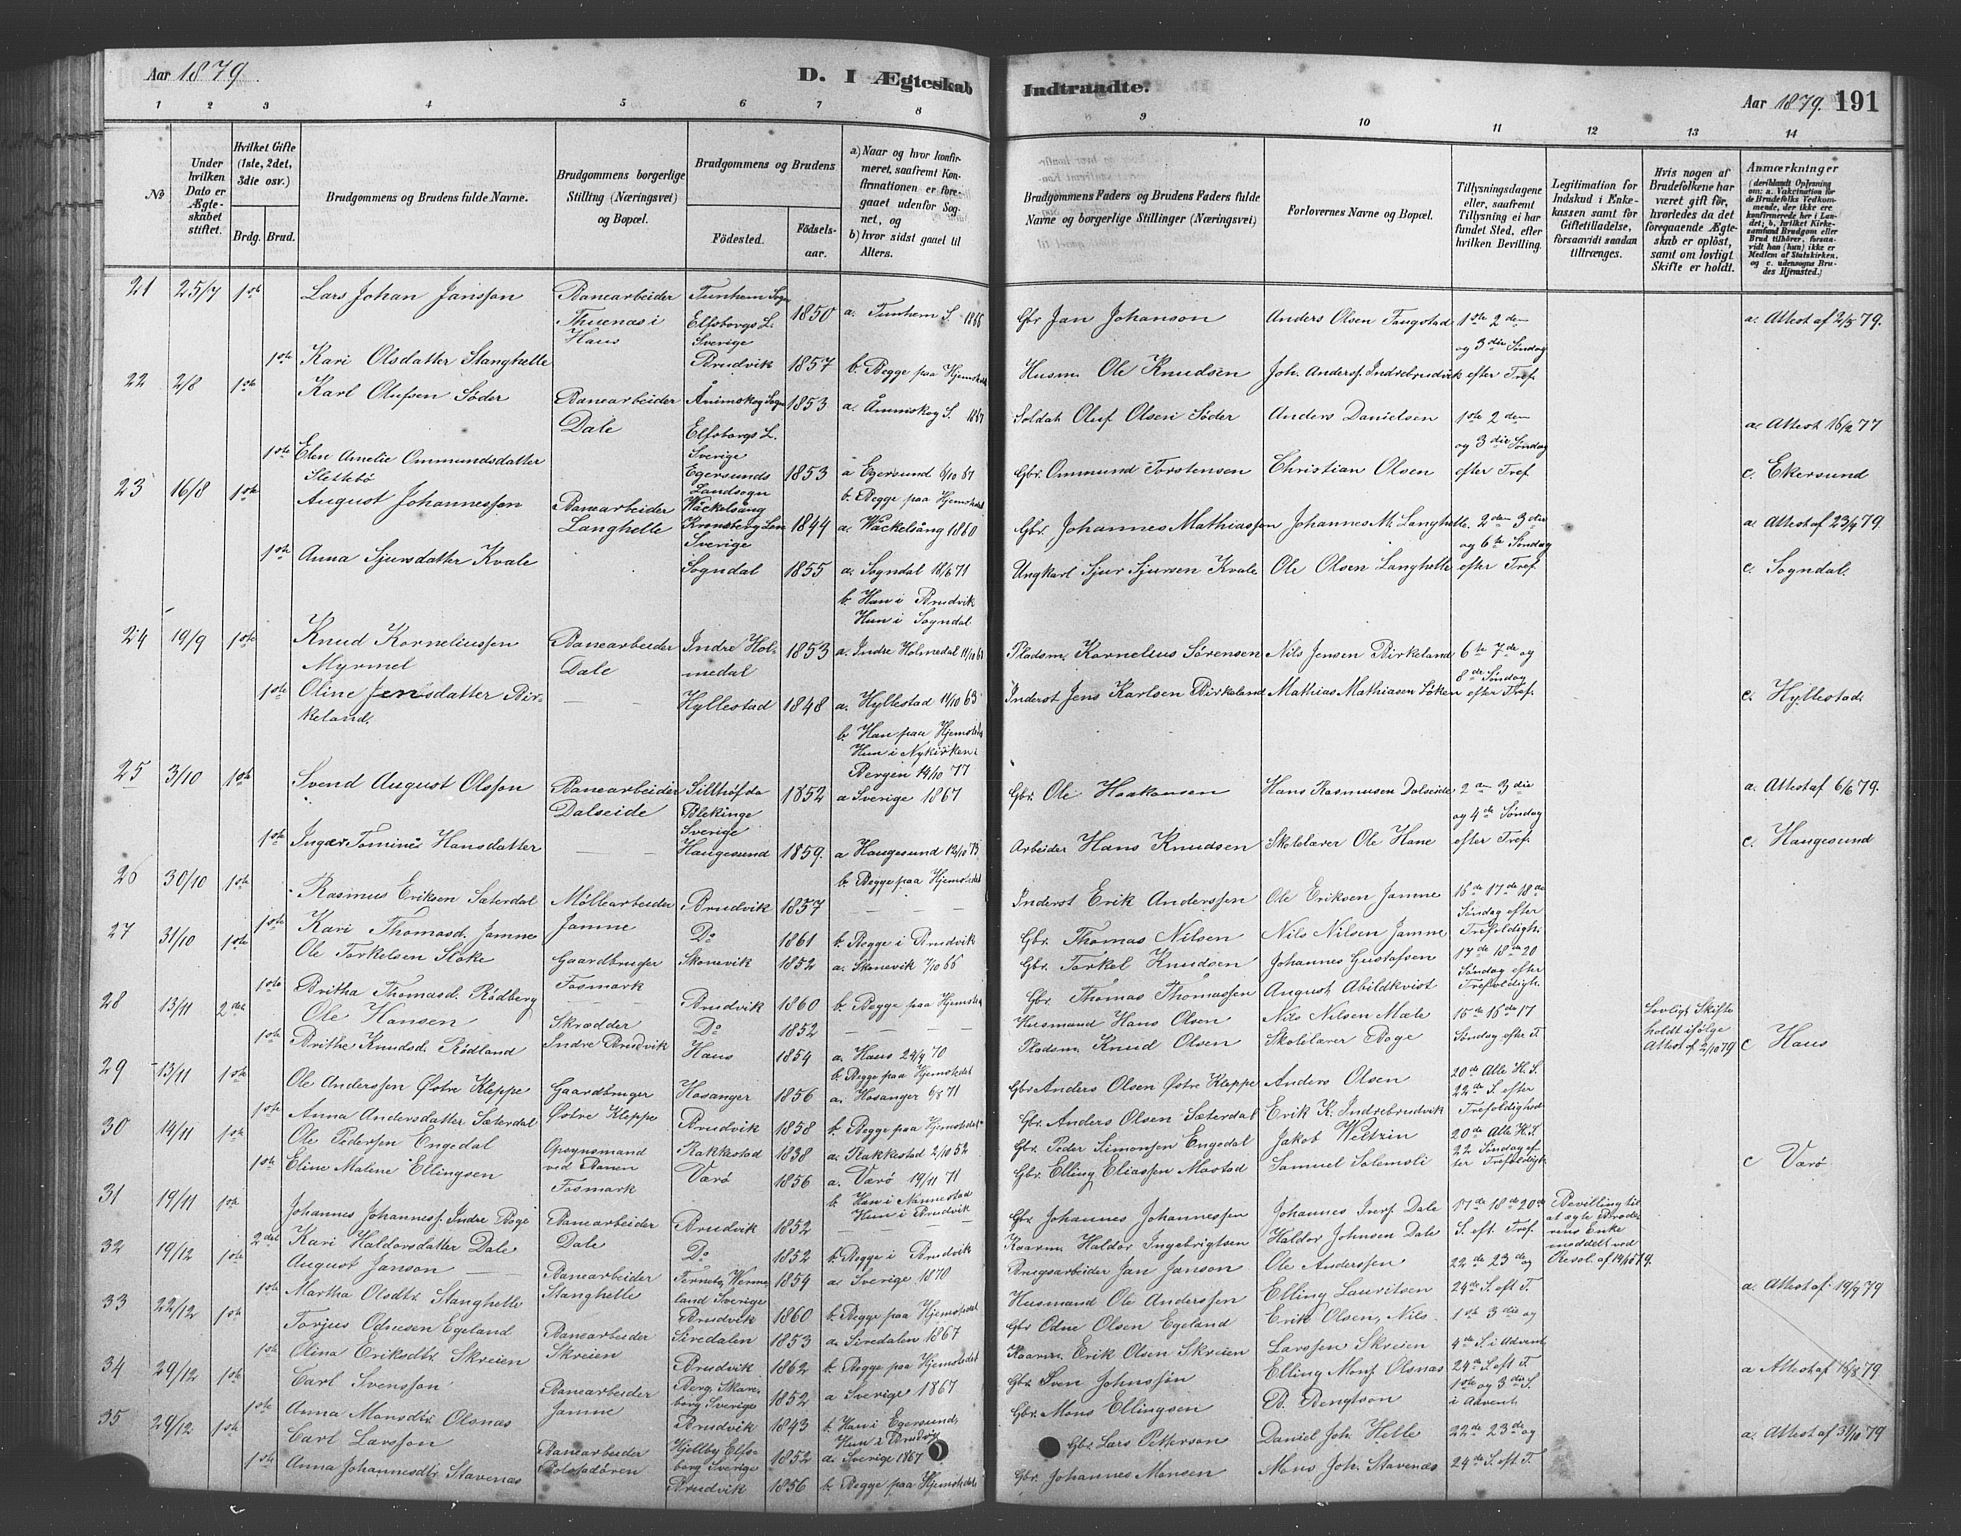 Aar 1879.
D. I Ægteskab
Indtraadte.
Aar 1879. 191
1 2 3 4 5 6 7 8 9 10 11 12 13 14
No
Under hvilken Dato er Ægteskabet stiftet.
Hvilket Gifte (1ste, 2det, 3die osv.)
Brdg. Brud.
Brudgommens og Brudens fulde Navne.
Brudgommens borgerlige Stilling (Næringsvei) og Bopæl.
Brudgommens og Brudens
Fødested.
Fødselsaar.
a) Naar og hvor konfirmeret, saafremt Konfirmationen er foregaaet udenfor Sognet, og
b) hvor sidst gaaet til Alters.
Brudgommens Faders og Brudens Faders fulde Navne og borgerlige Stillinger (Næringsvei)
Forlovernes Navne og Bopæl.
Tillysningsdagene eller, saafremt Tillysning ei har fundet Sted, efter hvilken Bevilling.
Legitimation for Indskud i Enkekassen samt for Giftetilladelse, forsaavidt saadan tiltrænges.
Hvis nogen af Brudefolkene har været gift før, hvorledes da det foregaaende Ægteskab er opløst, samt om lovligt Skifte er holdt.
Anmærkninger
(deriblandt Oplysning om: a. Vakcination for de Brudefolks Vedkommende, der ikke ere konfirmerede her i Landet; b. hvilket Kirkesamfund Brudgom eller Brud tilhører, forsaavidt han (hun) ikke er Medlem af Statskirken, og c. udensogns Brudes Hjemsted.)
21 25/7 1ste Lars Johan Jansson Banearbeider Thuenæs i Haus Tunhem Sogn Elfsborgs L. Sverige 1850 a. Tunhem S. 1866 Gbr Jan Johanson Anders Olsen Tangstad 1ste 2den og 3die Søndag a. Attest af 2/5 79.
1ste Kari Olsdatter Stanghelle Brudvik 1857 b. Begge paa Hjemstedet Husm. Ole Knudsen Joh. Anderss. Indrebrudvik efter Tref.
22 2/8 1ste Karl Olufsen Søder Banearbeider Dale Ånimskog Sogn Elfsborgs L. Sverige 1853 a. Ånimskog S. 1867 Soldat Oluf Olsen Søder Anders Danielsen 1ste 2den og 3die Søndag a. Attest 16/12 77
1ste Elen Amelie Ommundsdatter Slettebø Egersunds Landsogn 1853 a Egersund 6/10 67 b. Begge paa Hjemstedet Gbr. Ommund Torstensen Christian Olsen efter Tref c. Ekersund
23 16/8 1ste August Johannessøn Banearbeider Langhelle Wäckelsång Kronoberg Län Sverige 1844 a. Wäckelsång 1860 Gbr. Johannes Mathiassen Johannes M. Langhelle 2den 3die og 6te Søndag a. Attest af 23/7 79.
1ste Anna Sjursdatter Kvale Sogndal 1855 a. Sogndal 18/6 71 b. Han i Brudvik Hun i Sogndal Ungkarl Sjur Sjursen Kvale Ole Olsen Langhelle efter Tref. c. Sogndal.
24 19/9 1ste Knud Korneliussen Myrmel Banearbeider Dale Indre Holmedal 1853 a. Indre Holmedal Pladsm. Kornelius Sørensen Nils Jensen Birkeland 6te 7de og 8de Søndag
1ste Oline Jensdatter Birkeland. Hyllestad 1848 a. Hyllestad 11/10 63 b. Han paa Hjemstedet Hun i Nykirken i Bergen 14/10 77 Inderst Jens Karlsen Birkeland Mathias Mathiasen Løken efter Tref. c. Hyllestad.
25 3/10 1ste Svend August Olsson Banearbeider Dalseide Sillhöfda Blekinge Sverige 1852 a Sverige 1867 Gbr. Ole Haakansen Hans Rasmusen Dalseide 2den 3die og 4de Søndag a. Attest af 6/6 79.
1ste Inger Tomine Hansdatter Haugesund 1859. a Haugesund 12/10 73 b. Begge paa Hjemstedet Arbeider Hans Knudsen Skolelærer Ole Hane efter Tref. c. Haugesund
26 30/10 1ste Rasmus Eriksen Sæterdal Møllearbeider Jamne Brudvik 1857 Inderst Erik Anderssen Ole Eriksen Jamne 16de 17de 18de Søndag efter
1ste Kari Thomasd. Jamne Do 1861 b. Begge i Brudvik Gbr. Thomas Nilsen Nils Nilsen Jamne Trefoldigh.
27 31/10 1ste Ole Torkelsen Støle Gaardbruger Fosmark Skonevik 1852 a. Skonevik 7/10 66 Gbr. Torkel Knudsen Johannes Gustafsen 17de 18de 20 Søndag efter
1ste Britha Thomasd. Rødberg Brudvik 1860 b. Begge paa Hjemstedet Gbr. Thomas Thomassen August Abildkvist Trefoldigh.
28 13/11 2det Ole Hansen Skrædder Indre Brudvik Do 1852 Husmand Hans Olsen Nils Nilsen Mæle 15de 16de 17 Lovligt Skifte holdt ifølge Attest af 2/10 79
1ste Brithe Knudsd. Rødland Haus 1854 a. Haus 24/9 70 b. Begge paa Hjemstedet Pladsm. Knud Olsen Skolelærer Boge Søndag efter T. c Haus
29 13/11 1ste Ole Anderssen Østre Kleppe Gaardbruger Østre Kleppe Hosanger 1856 a. Hosanger 6/8 71 Gbr. Anders Olsen Østre Kleppe Anders Olsen 20de Alle H. S. 22de S. efter
1ste Anna Andersdatter Sæterdal Brudvik 1858 b. Begge paa Hjemstedet Gbr. Anders Olsen Sæterdal Erik K. Indrebrudvik Trefoldighed
30 14/11 1ste Ole Pedersen Engedal Opsynsmand ved Banen Fosmark Rakkestad 1838 a. Rakkestad 2/10 52 Gbr. Peder Simonsen Engedal Jakob Weltzin 20de Alle H. S. 22 Søndag efter Trefoldigh
1ste Eline Malene Ellingsen Værø 1856 a. Værø 19/11 71 b. Han i Nannestad Hun i Brudvik Gbr. Elling Eliassen Mastad Samuel Solemsli c Værø
31 19/11 1ste Johannes Johanness. Indre Boge Banearbeider Dale Brudvik 1852 Gbr. Johannes Johannessen Johannes Dale 17de 18de 20de S. eft. Tref. Bevilling til at ægte Broderens Enke meddelt ved Resol. af 14/10 79.
2det Kari Haldorsdatter Dale Do 1852 b. Begge i Brudvik Kaarm. Haldor Ingebrigtsen Haldor Johnsen Dale
32 19/12 1ste August Janson Banearbeider Stanghelle Wermeland Sverige 1854 a Sverige 1870 Brugsarbeider Jan Janson Ole Anderssen 22de 23de og 24de S. eft T. a. Attest af 19/9 79
1ste Martha Olsdtr. Stanghelle Brudvik 1860 b. Begge paa Hjemstedet Husmand Ole Anderssen Elling Lauritsen
33 22/12 1ste Torjus Odnesen Egeland Banearbeider Skreien Siredalen 1853 a. Siredalen 1867 Gbr Odne Olsen Egeland Erik Olsen, Nils Larssen Skreien 1ste 3die og 4de S. i Advent
1ste Olina Eriksdtr. Skreien Brudvik 1862 b. Begge paa Hjemstedet Kaarm. Erik Olsen Skreien
34 29/12 1ste Carl Svensson Banearbeider Jamne Berg, Skaraborg Sverige 1852 a Sverige 1867 Gbr. Sven Johnsson Elling Mons. Olsnæs 24de S. eft T. 1ste og 3die S. i Advent a Attest af 16/8 79
1ste Anna Monsdtr. Olsnæs Brudvik 1843 b. Han i Egersund, Hun i Brudvig Gbr. Mons Ellingsen B. Bengtson
35 29/12 1ste Carl Larsson Banearbeider Bolstadøren Hjellby Elfsborg Sverige 1852 a. Sverige 1867 Gbr. Lars Petterson Daniel Joh. Helle 22de 23de og a. Attest af 31/10 79
1ste Anna Johannesdtr. Stavenæs Brudvik 1856 b. Begge paa Hjemstedet Gbr. Johannes Monsen Mons Joh. Stavenæs 24de S. eft. T.